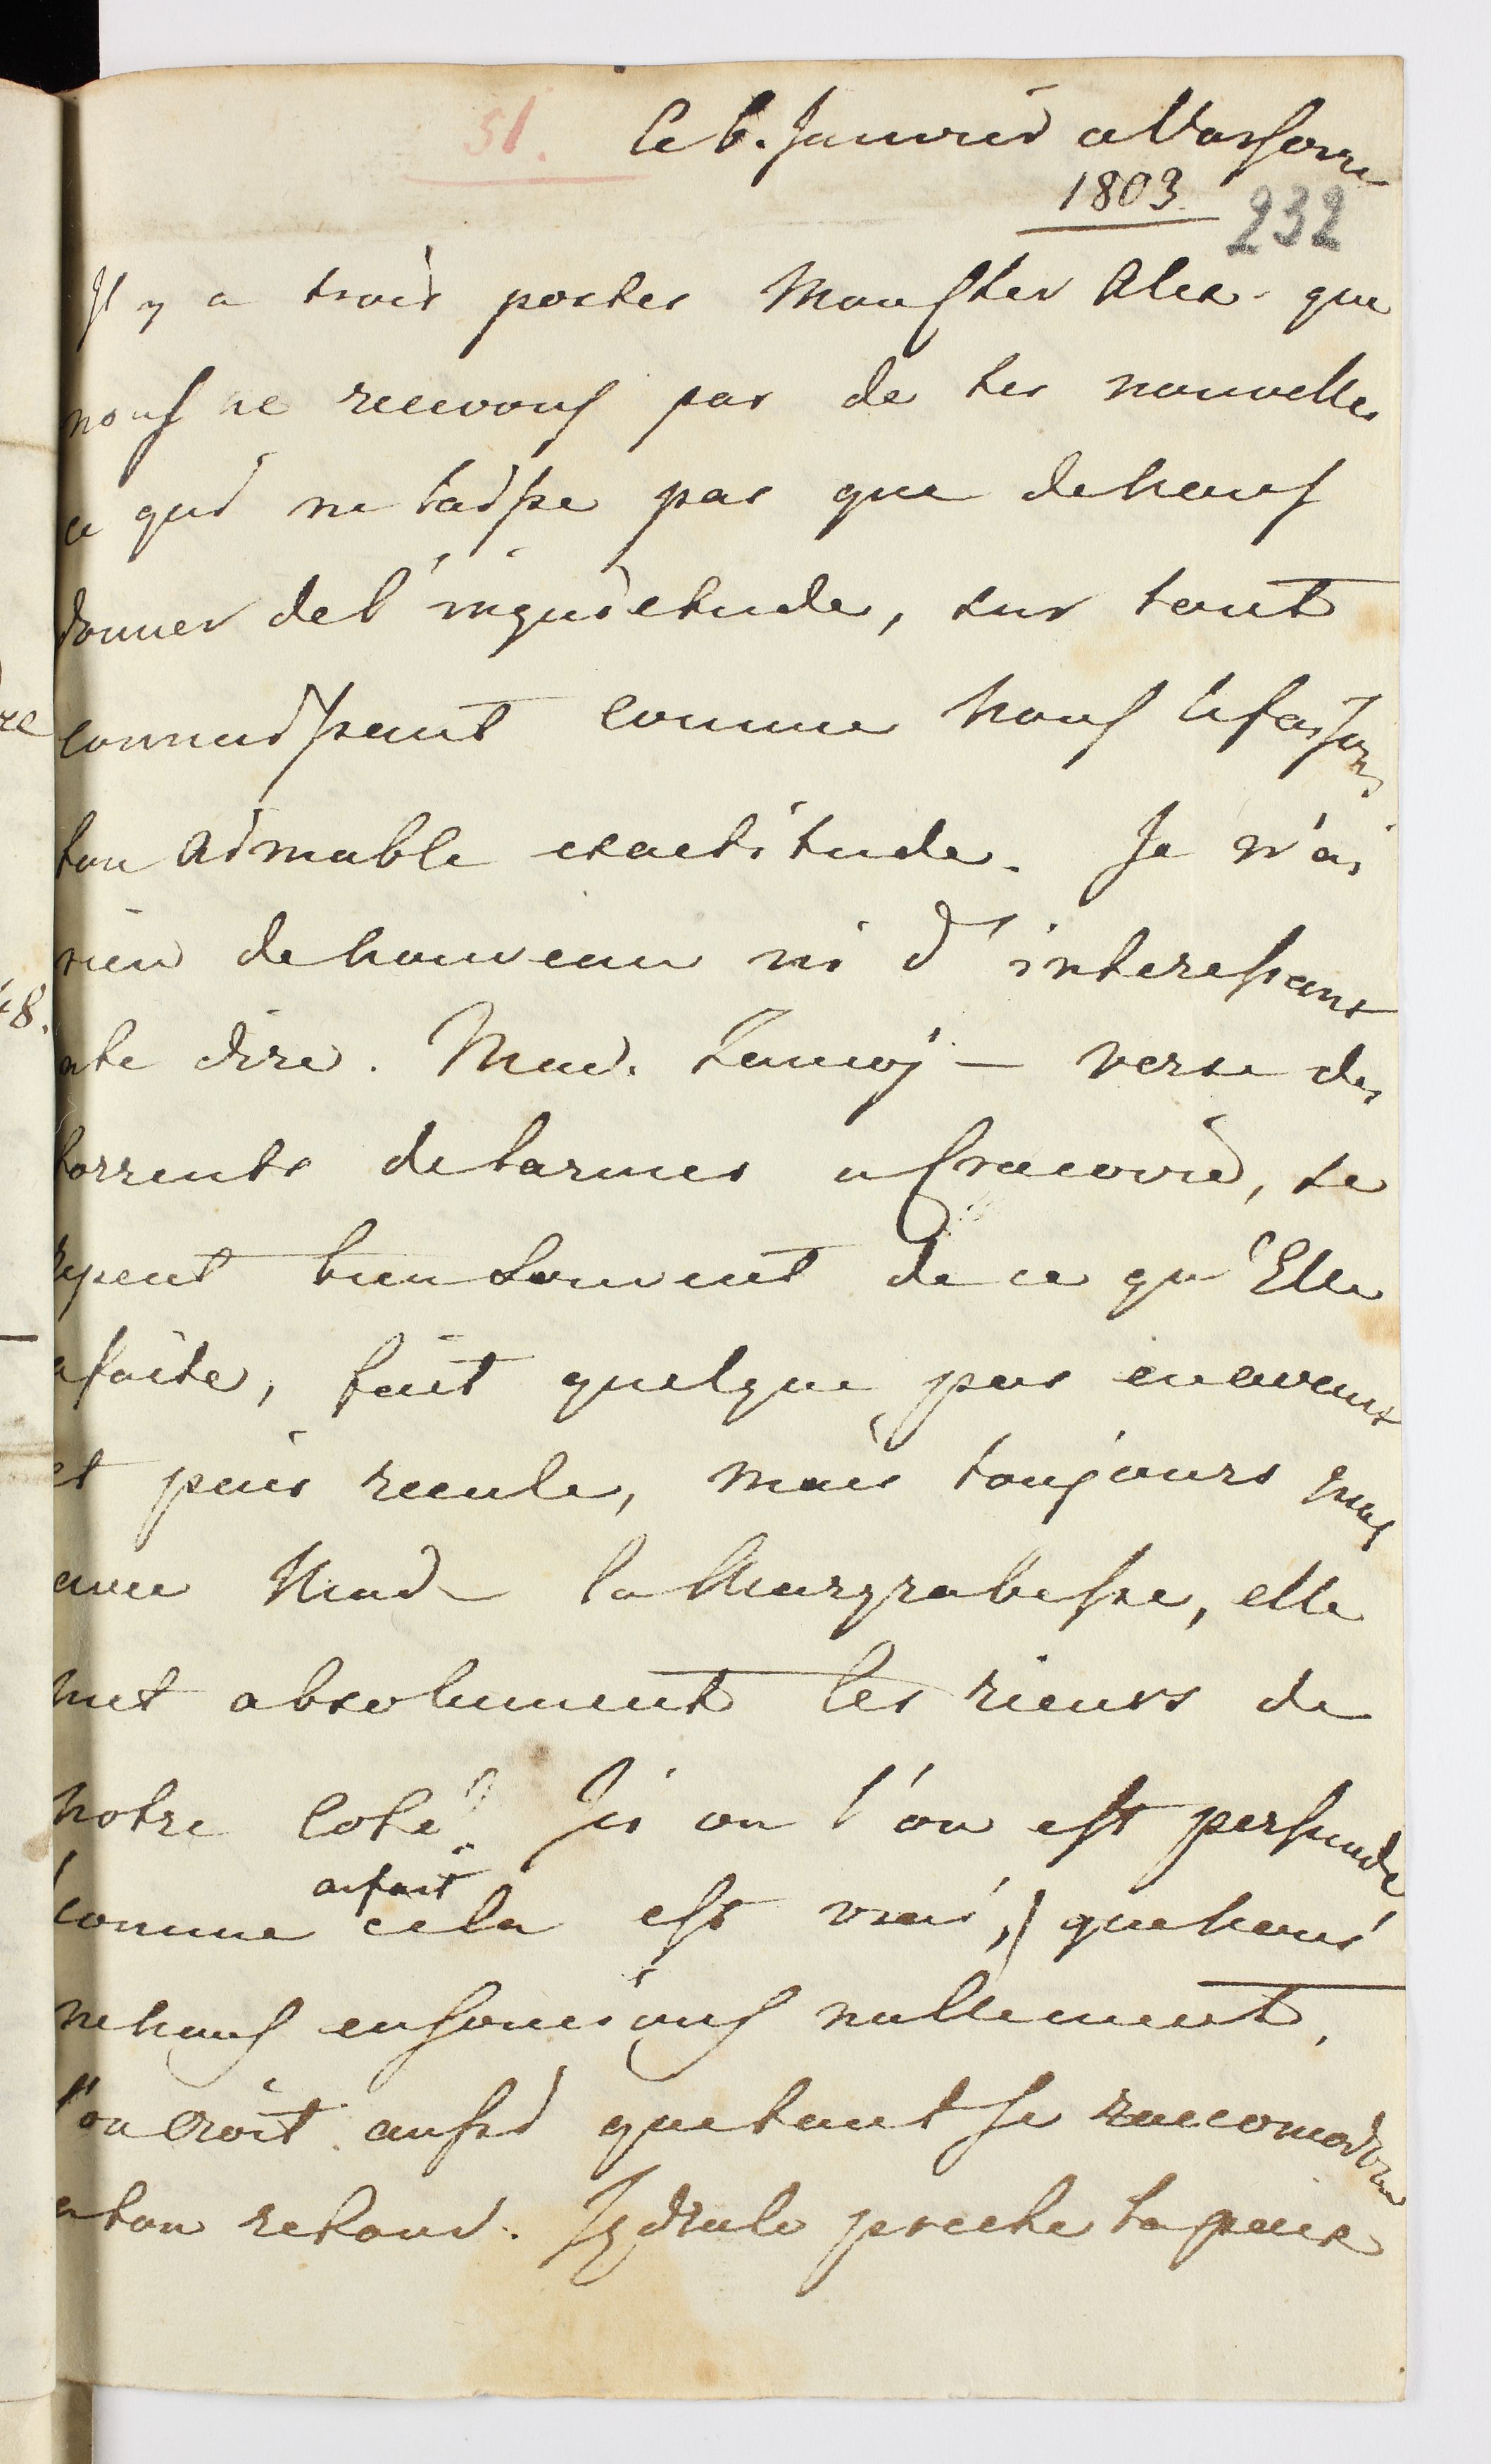 51. Ce 6. Janvier a Varsovie
1803.
232
Il y a trois postes Mon cher Alex. que
nous ne recevons pas de tes nouvelles
ce qui ne laisse pas que de nous
donner de l'inquietude, sur tout
connaissant comme nous le faisons
ton aimable exactitude. Je n'ai
rien de nouveau ni d'interessant
a te dire. Mad. Zamoÿ — verse des
torrents de larmes a Cracovie, se
repent bien souvent de ce qu'Elle
a faite, fait quelque pas en avant
et puis recule, mais toujours
avec Mad. la Margrabesse, elle
met absolument les rieurs de
notre coté! Ici ou l'on est persuadé
(comme cela est vrai,) que nous
au fait
ne nous en soucions nullement,
l'on croit aussi que tout se raccomodera
a ton retour. Izdrale preche la paix